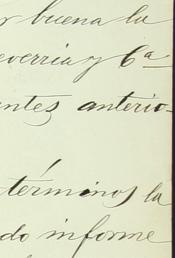 y buena la
everria y 6ª
entes anterio-
términos la
do informe